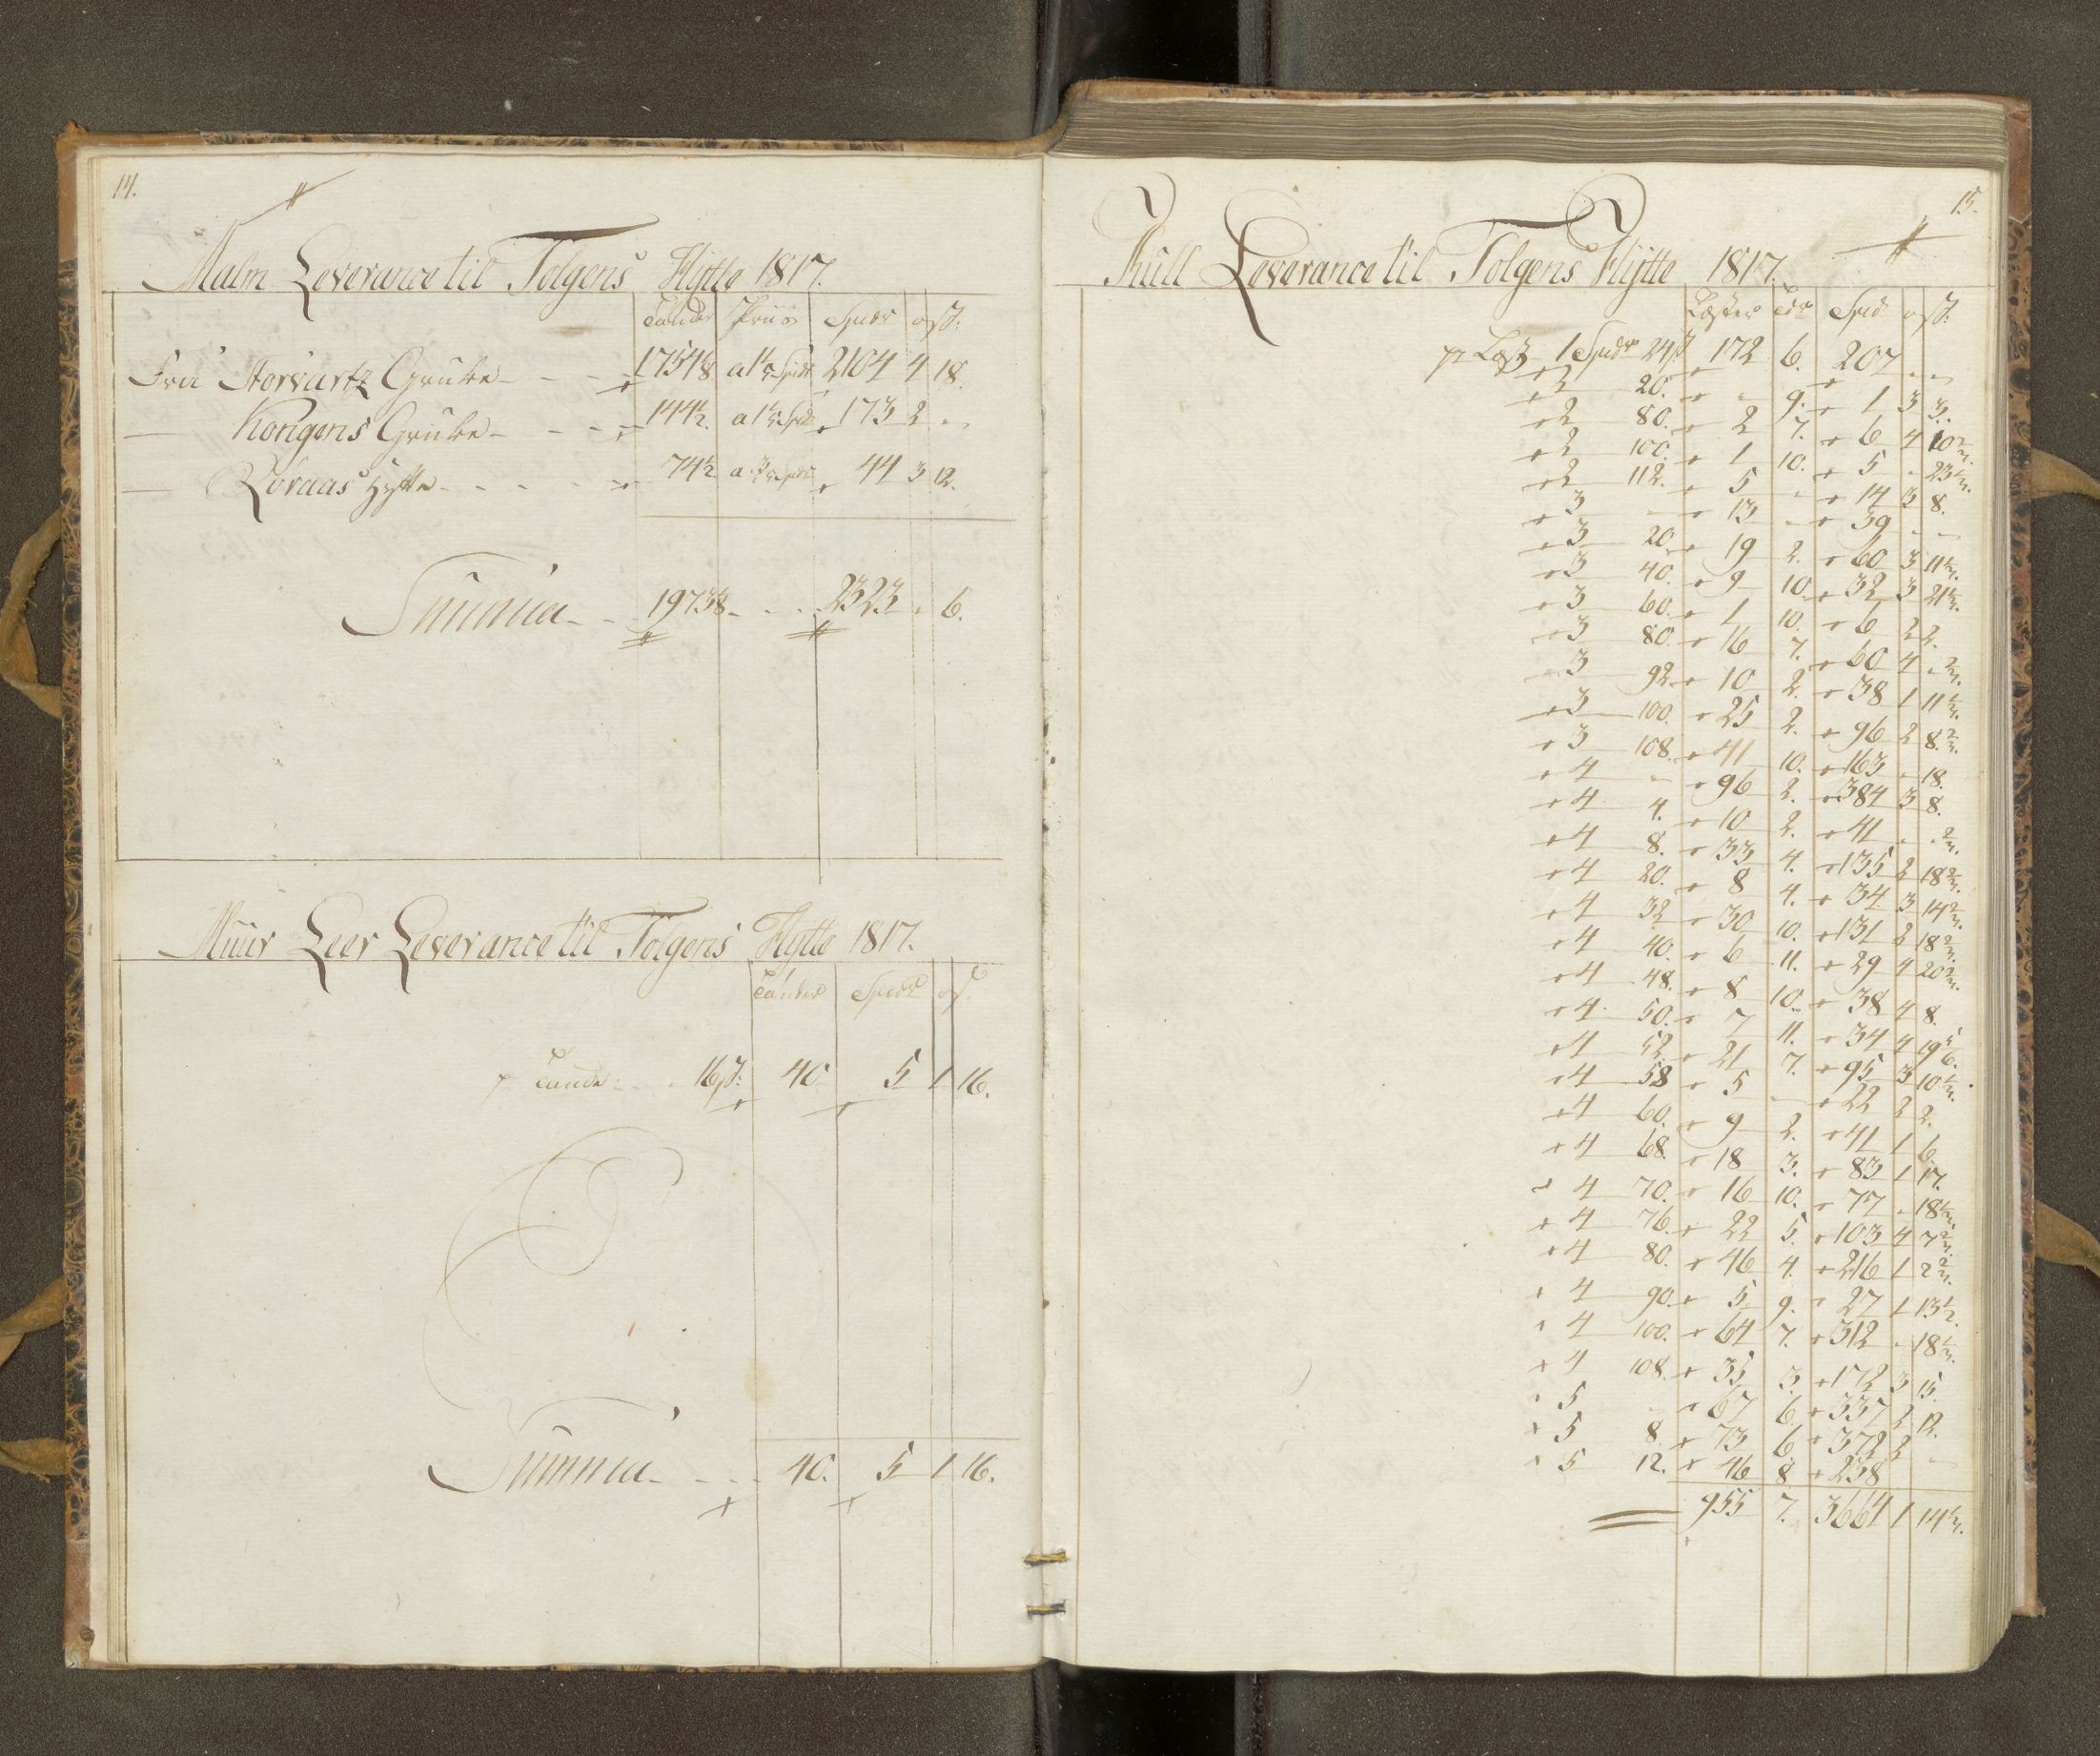 14.
Malm Leverance til Tolgens Hÿtte 1817.
Tønder Priis Spdr o ß:
Fra Storvartz Grube 1754⅛ a 1⅕ Spdr 2104 4 18.
— Kongens Grube 144½. a 1⅕ Spdr 173 2 "
— Röraas Hytte 74½ a ⅗ Spdr 44 3 12.
Summa 1973⅛ 2323 " 6.
Muur Leer Leverance til Tolgens Hytte 1817.
Tønder Spdr o ß.
pr Tønde 16 ß: 40 5 1 16.
Summa 40. 5 1 16.
15.
Kull Leverance til Tolgens Hÿtte 1817.
Læster Tdr Spd o ß:
pr Læst 1 Spdr 24 ß 172 6. 207 " "
2 20. " 9. 1 3 3.
2 80. 2 7. 6 4 10⅔.
2 100. 1 10. 5 " 23⅓.
2 112. 5 " 14 3 8.
3 " 13 " 39 " "
3 20 19 2. 60 3 11⅓.
3 40. 9 10 32 3 21⅓.
3 60. 1 10. 6 2 2.
3 80. 16 7. 60 4 " ⅔.
3 92. 10 2. 38 1 11⅓.
3 100. 25 2. 96 2 8⅔.
3 108. 41 10. 163 " 18.
4 " 96 2. 384 3 8.
4 4. 10 2. 41 " " ⅔.
4 8. 33 4. 135 2 18⅔.
4 20. 8 4. 34 3 14⅔.
4 32 30 10. 131 2 18⅔.
4 40. 6 11. 29 4 20⅔.
4 48. 8 10. 38 4 8.
4 50. 7 11. 34 4 19⅚.
4 52. 21 7. 95 3 10⅓.
4 58 5 " 22 2 2.
4 60. 9 2. 41 1 6.
4 68. 18 3. 83 1 17.
4 70. 16 10. 77 " 18⅓.
4 76. 22 5. 103 4 7⅔.
4 80. 46 4. 216 1 2⅔.
4 90. 5 9. 27 1 13½.
4 100. 64 7. 312 " 18⅓.
4 108. 35 3. 172 3 15.
5 " 67 6 337 2 12.
5 8. 73 6 372 2 "
5 12. 46 8 238
955 7. 3664 1 14⅓.